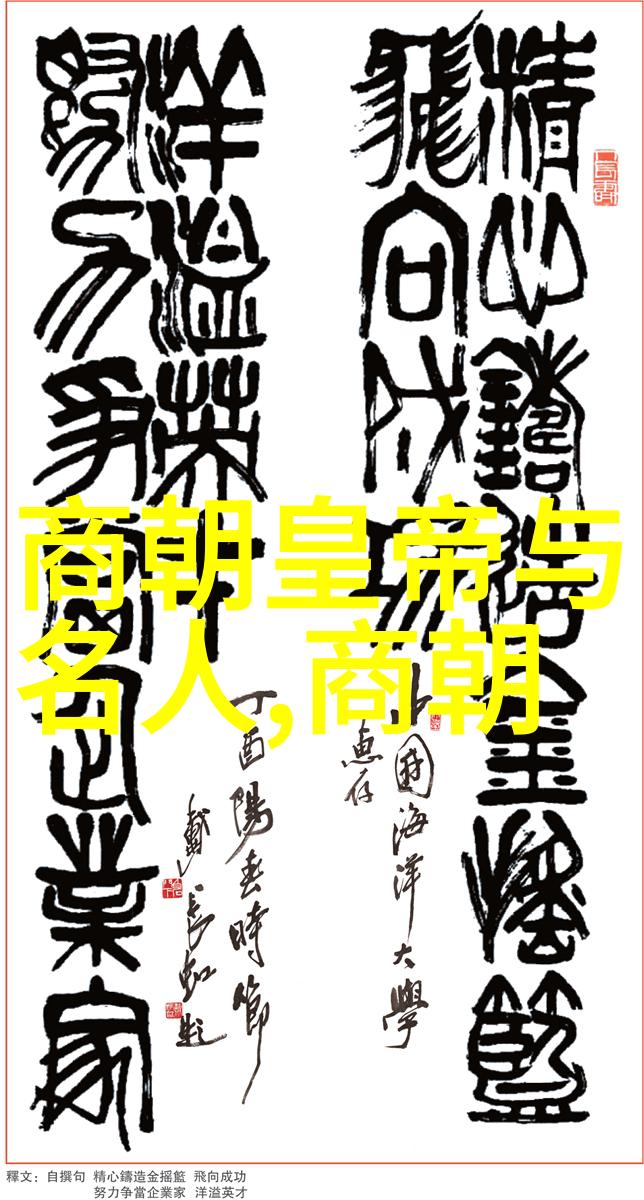 精心鑄造金搖籃
飛向成功
中國海洋大學
惠存
努力爭當企業家
洋溢英才
丁酉陽春時節
戴長虹題
商朝皇帝与
名人,商朝
釋文：自撰句 精心鑄造金摇籃 飛向成功
努力争當企業家 洋溢英才